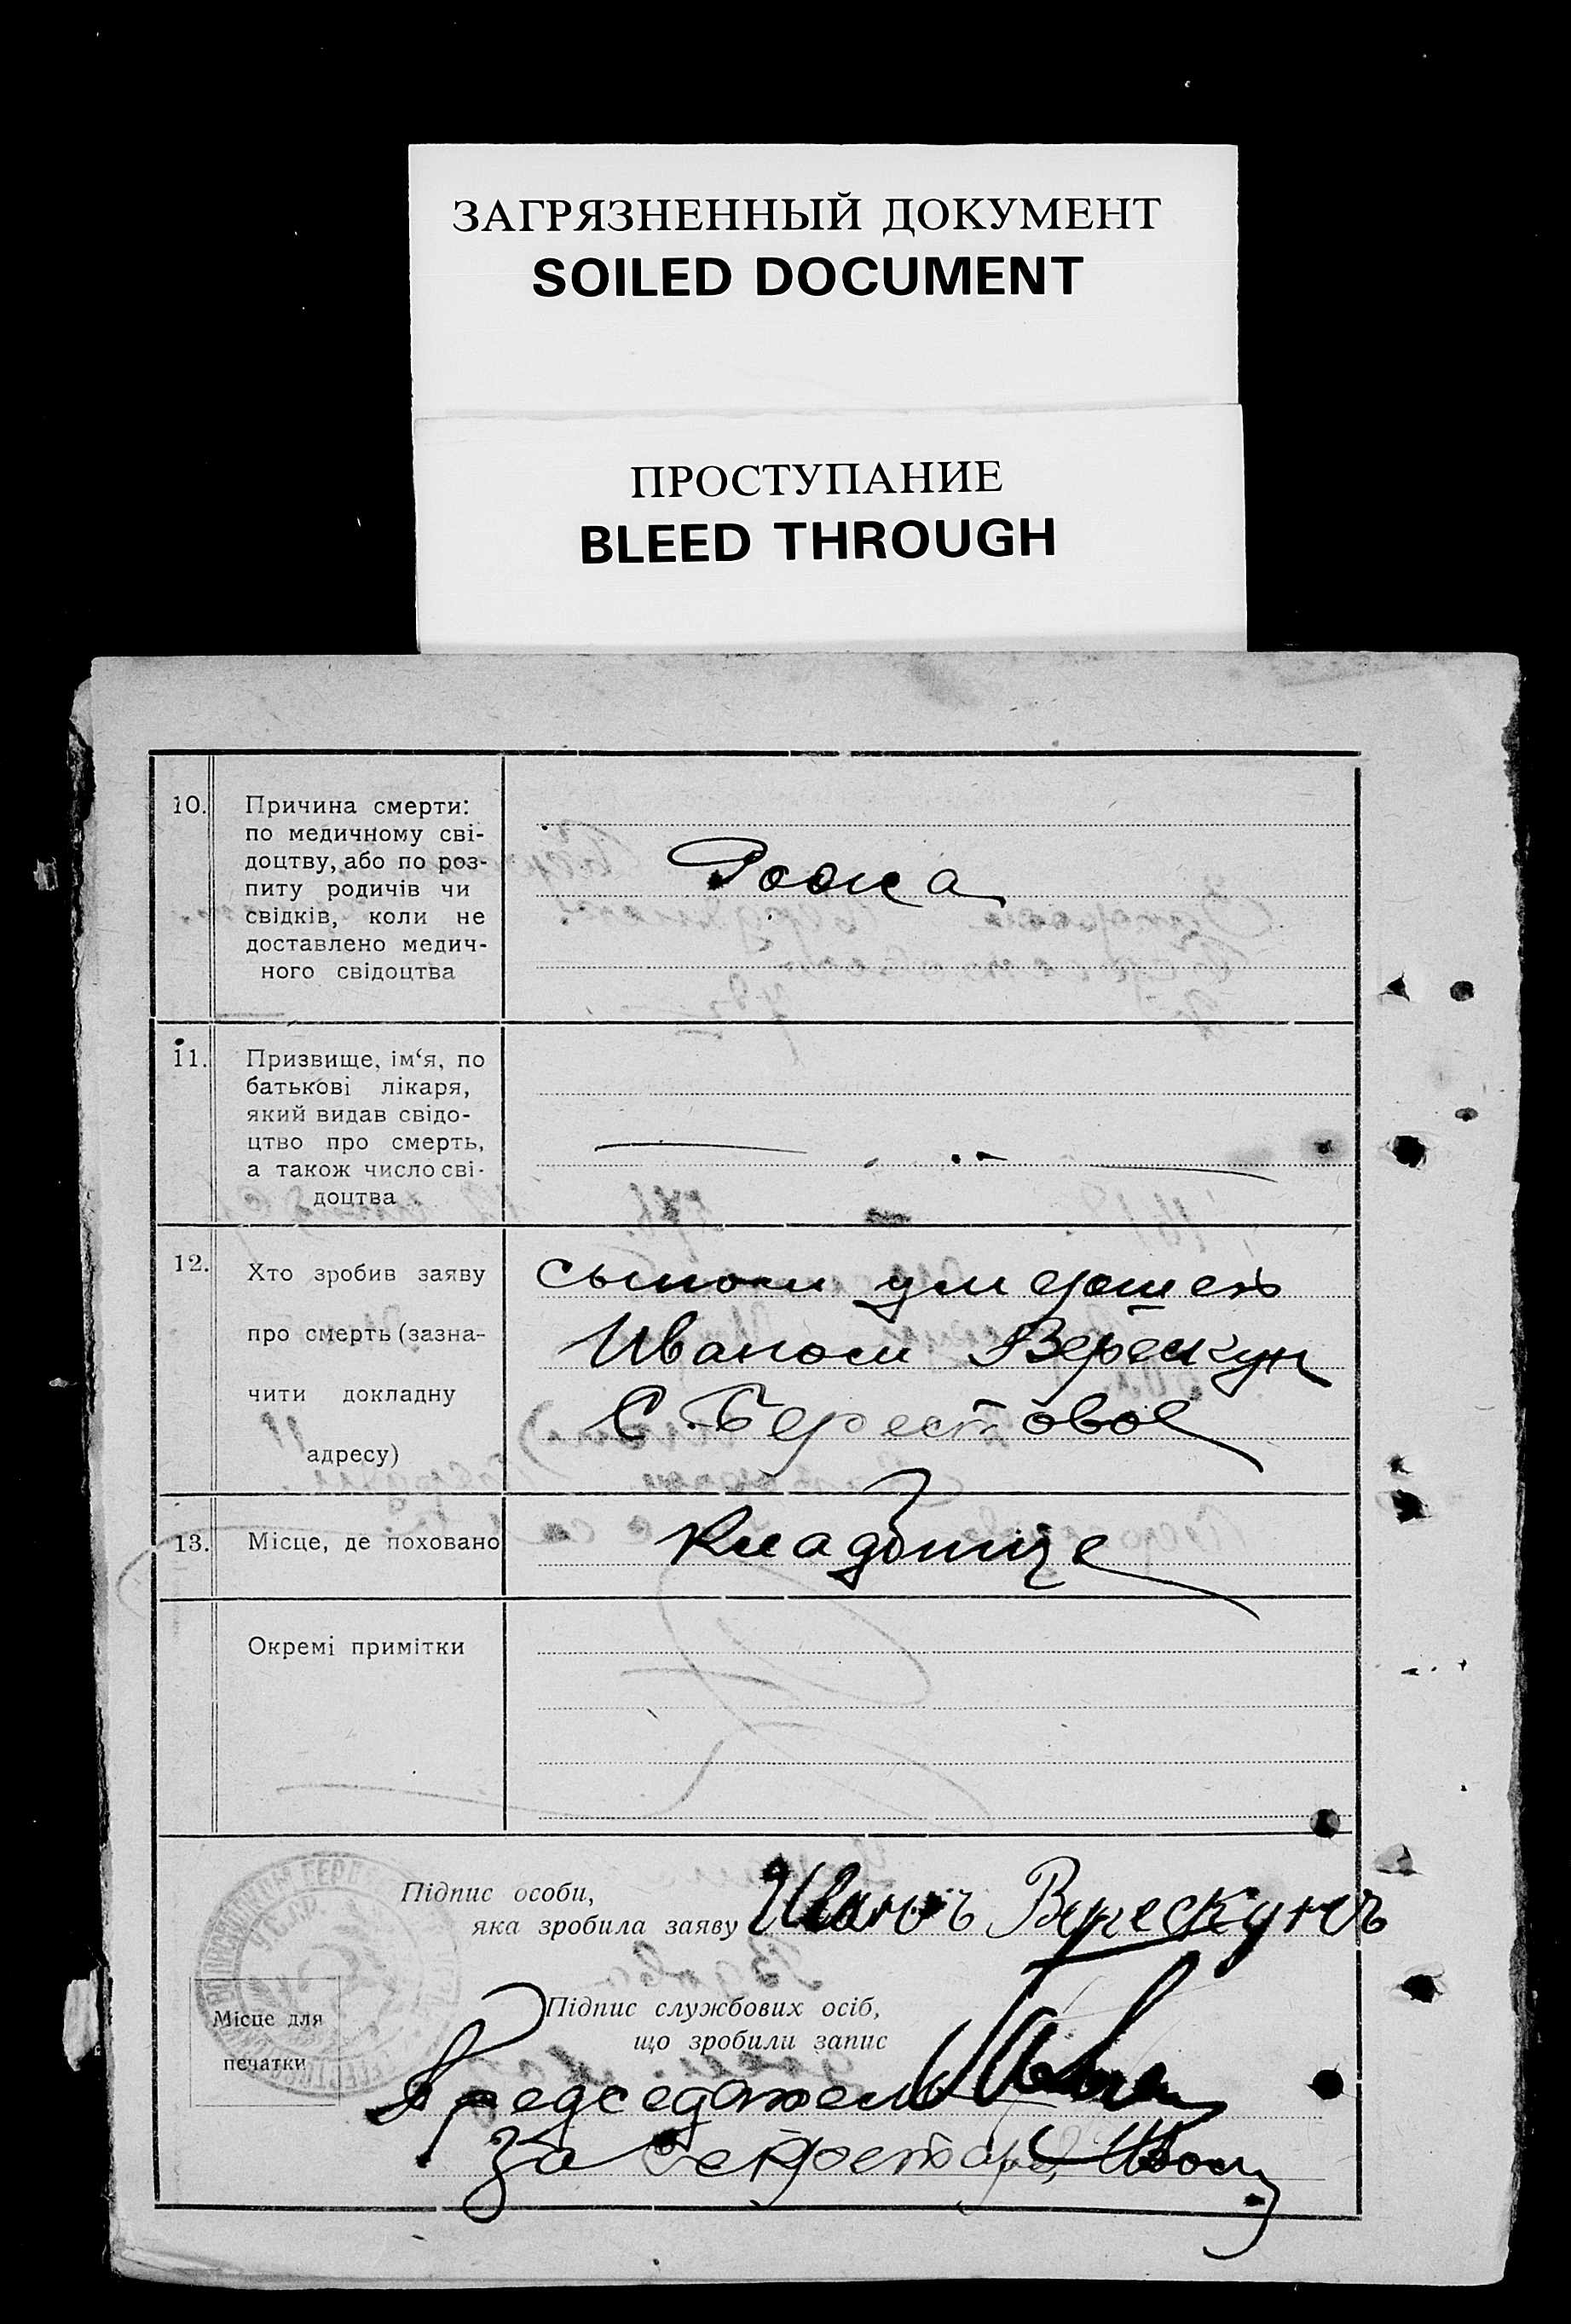 ЗАГРЯЗНЕННЫЙ ДОКУМЕНТ
SOILED DOCUMENT
ПРОСТУПАНИЕ
BLEED THROUGH
10.
Причина смерти:
по медичному сві-
доцтву, або по роз-
питу родичів чи
свідків, коли не
доставлено медич-
ного свідоцтва
Рожа
11.
Призвище, ім‘я, по
батькові лікаря,
який видав свідо-
цтво про смерть,
а також число сві-
доцтва
12.
Хто зробив заяву
про смерть (зазна-
чити докладну
адресу)
сыном
Иваном Верескун
С. Берестовое
13.
Місце, де поховано
Кладбище
Окремі примітки
Підпис особи,
яка зробила заяву
Иванъ Верескунъ
Підпис службових осіб,
що зробили запис
Місце для
печатки
УСРР
Председатель
За Секретаря